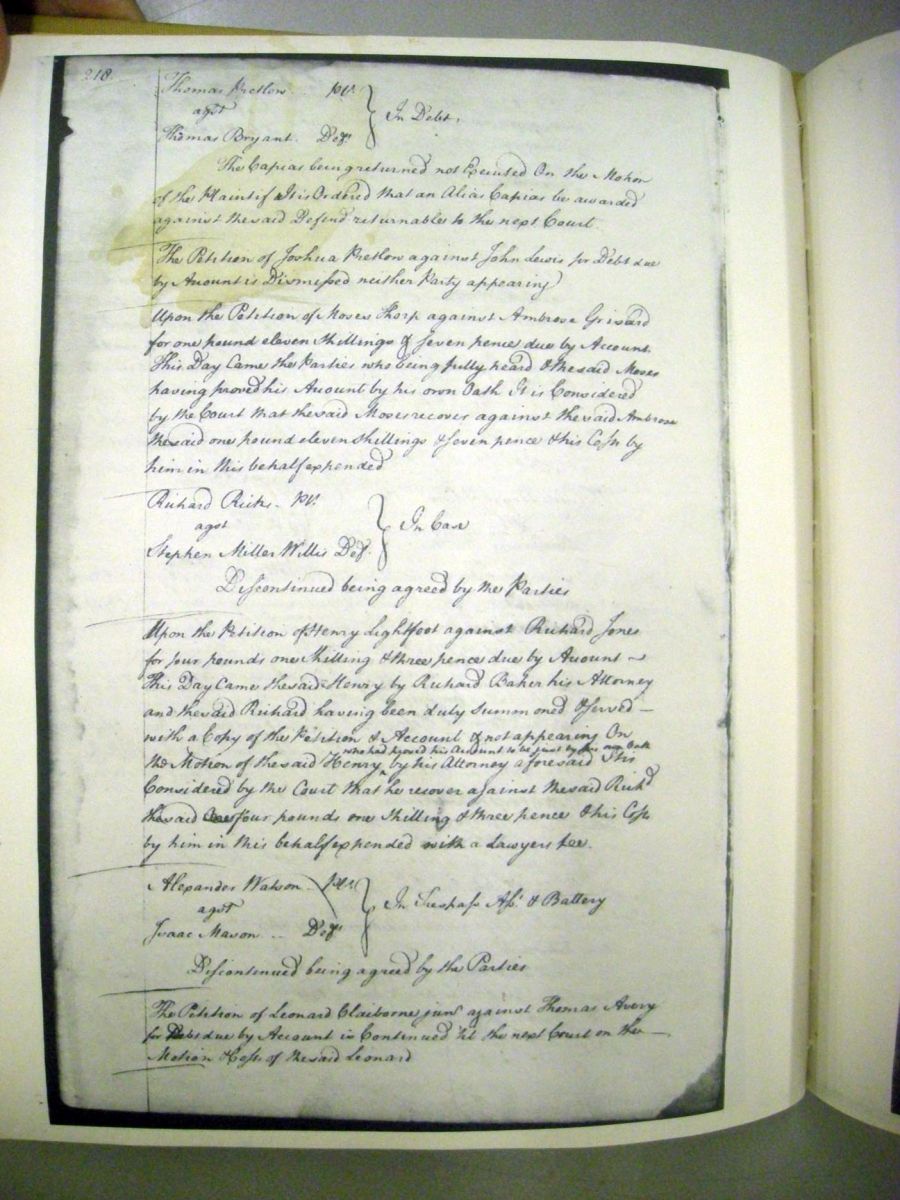 218
Thomas Pretlow Plt.
agst } In Debt,
Thomas Bryant. Deft.
The Capias being returned not Executed On the Motion
of the Plaintif It is Ordered that an Alias Capias be awarded
against the said Defend returnable to the next Court
The Petition of Joshua Pretlow against John Lewis for Debt due
by Account is Dismissed neither Party appearing
Upon the Petition of Moses Thorp against Ambrose Grizard
for one pound eleven Shillings & seven pence due by Account.
This Day Came the Parties who being fully heard & the said Moses
having proved his Account by his own Oath It is Considered
by the Court that the said Moses recover against the said Ambrose
the said one pound eleven Shillings & seven pence & his Costs by
him in this behalf expended
Richard Ricks Plt.
agst } In Case
Stephen Miller Willis Deft.
Discontinued being agreed by the Parties
Upon the Petition of Henry Lightfoot against Richard Jones
for four pounds one Shilling & three pence due by Account
This Day Came the said Henry by Richard Baker his Attorney
and the said Richard having been duly Summoned & Served
with a Copy of the Petition & Account & not appearing On
who had proved his Account to be just by his own Oath
the Motion of the said Henry ^ by his Attorney aforesaid It is
Considered by the Court that he recover against the said Richd
the said four pounds one Shilling & three pence & his Costs
by him in this behalf expended with a Lawyers fee.
Alexander Watson Plt.
agst } In Trespass Asst. & Battery
Isaac Mason Deft.
Discontinued being agreed by the Parties
The Petition of Leonard Claiborne junr against Thomas Avery
for Debt due by Account is Continued 'til the next Court on the
Motion & Costs of the said Leonard